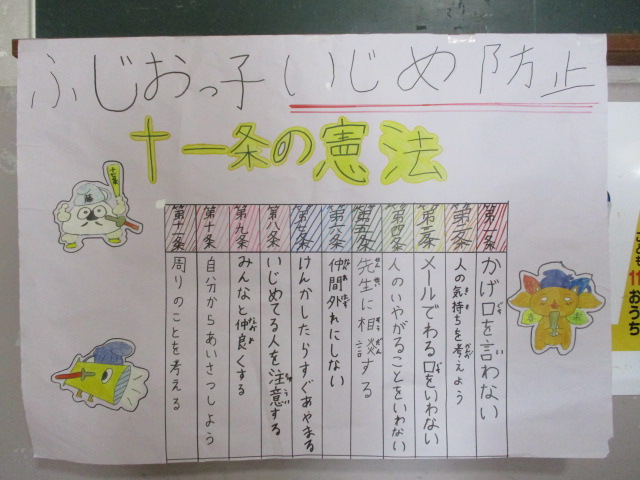 ふじおっ子いじめ防止
十一条の憲法
第一条 かげ口を言わない
第二条 人の気持ちを考えよう
第三条 メールでわる口をいわない
第四条 人のいやがることをいわない
第五条 先生に相談する
第六条 仲間外れにしない
第七条 けんかしたらすぐあやまる
第八条 いじめてる人を注意する
第九条 みんなと仲良くする
第十条 自分からあいさつしよう
第十一条 周りのことを考える
こども
11
おうち